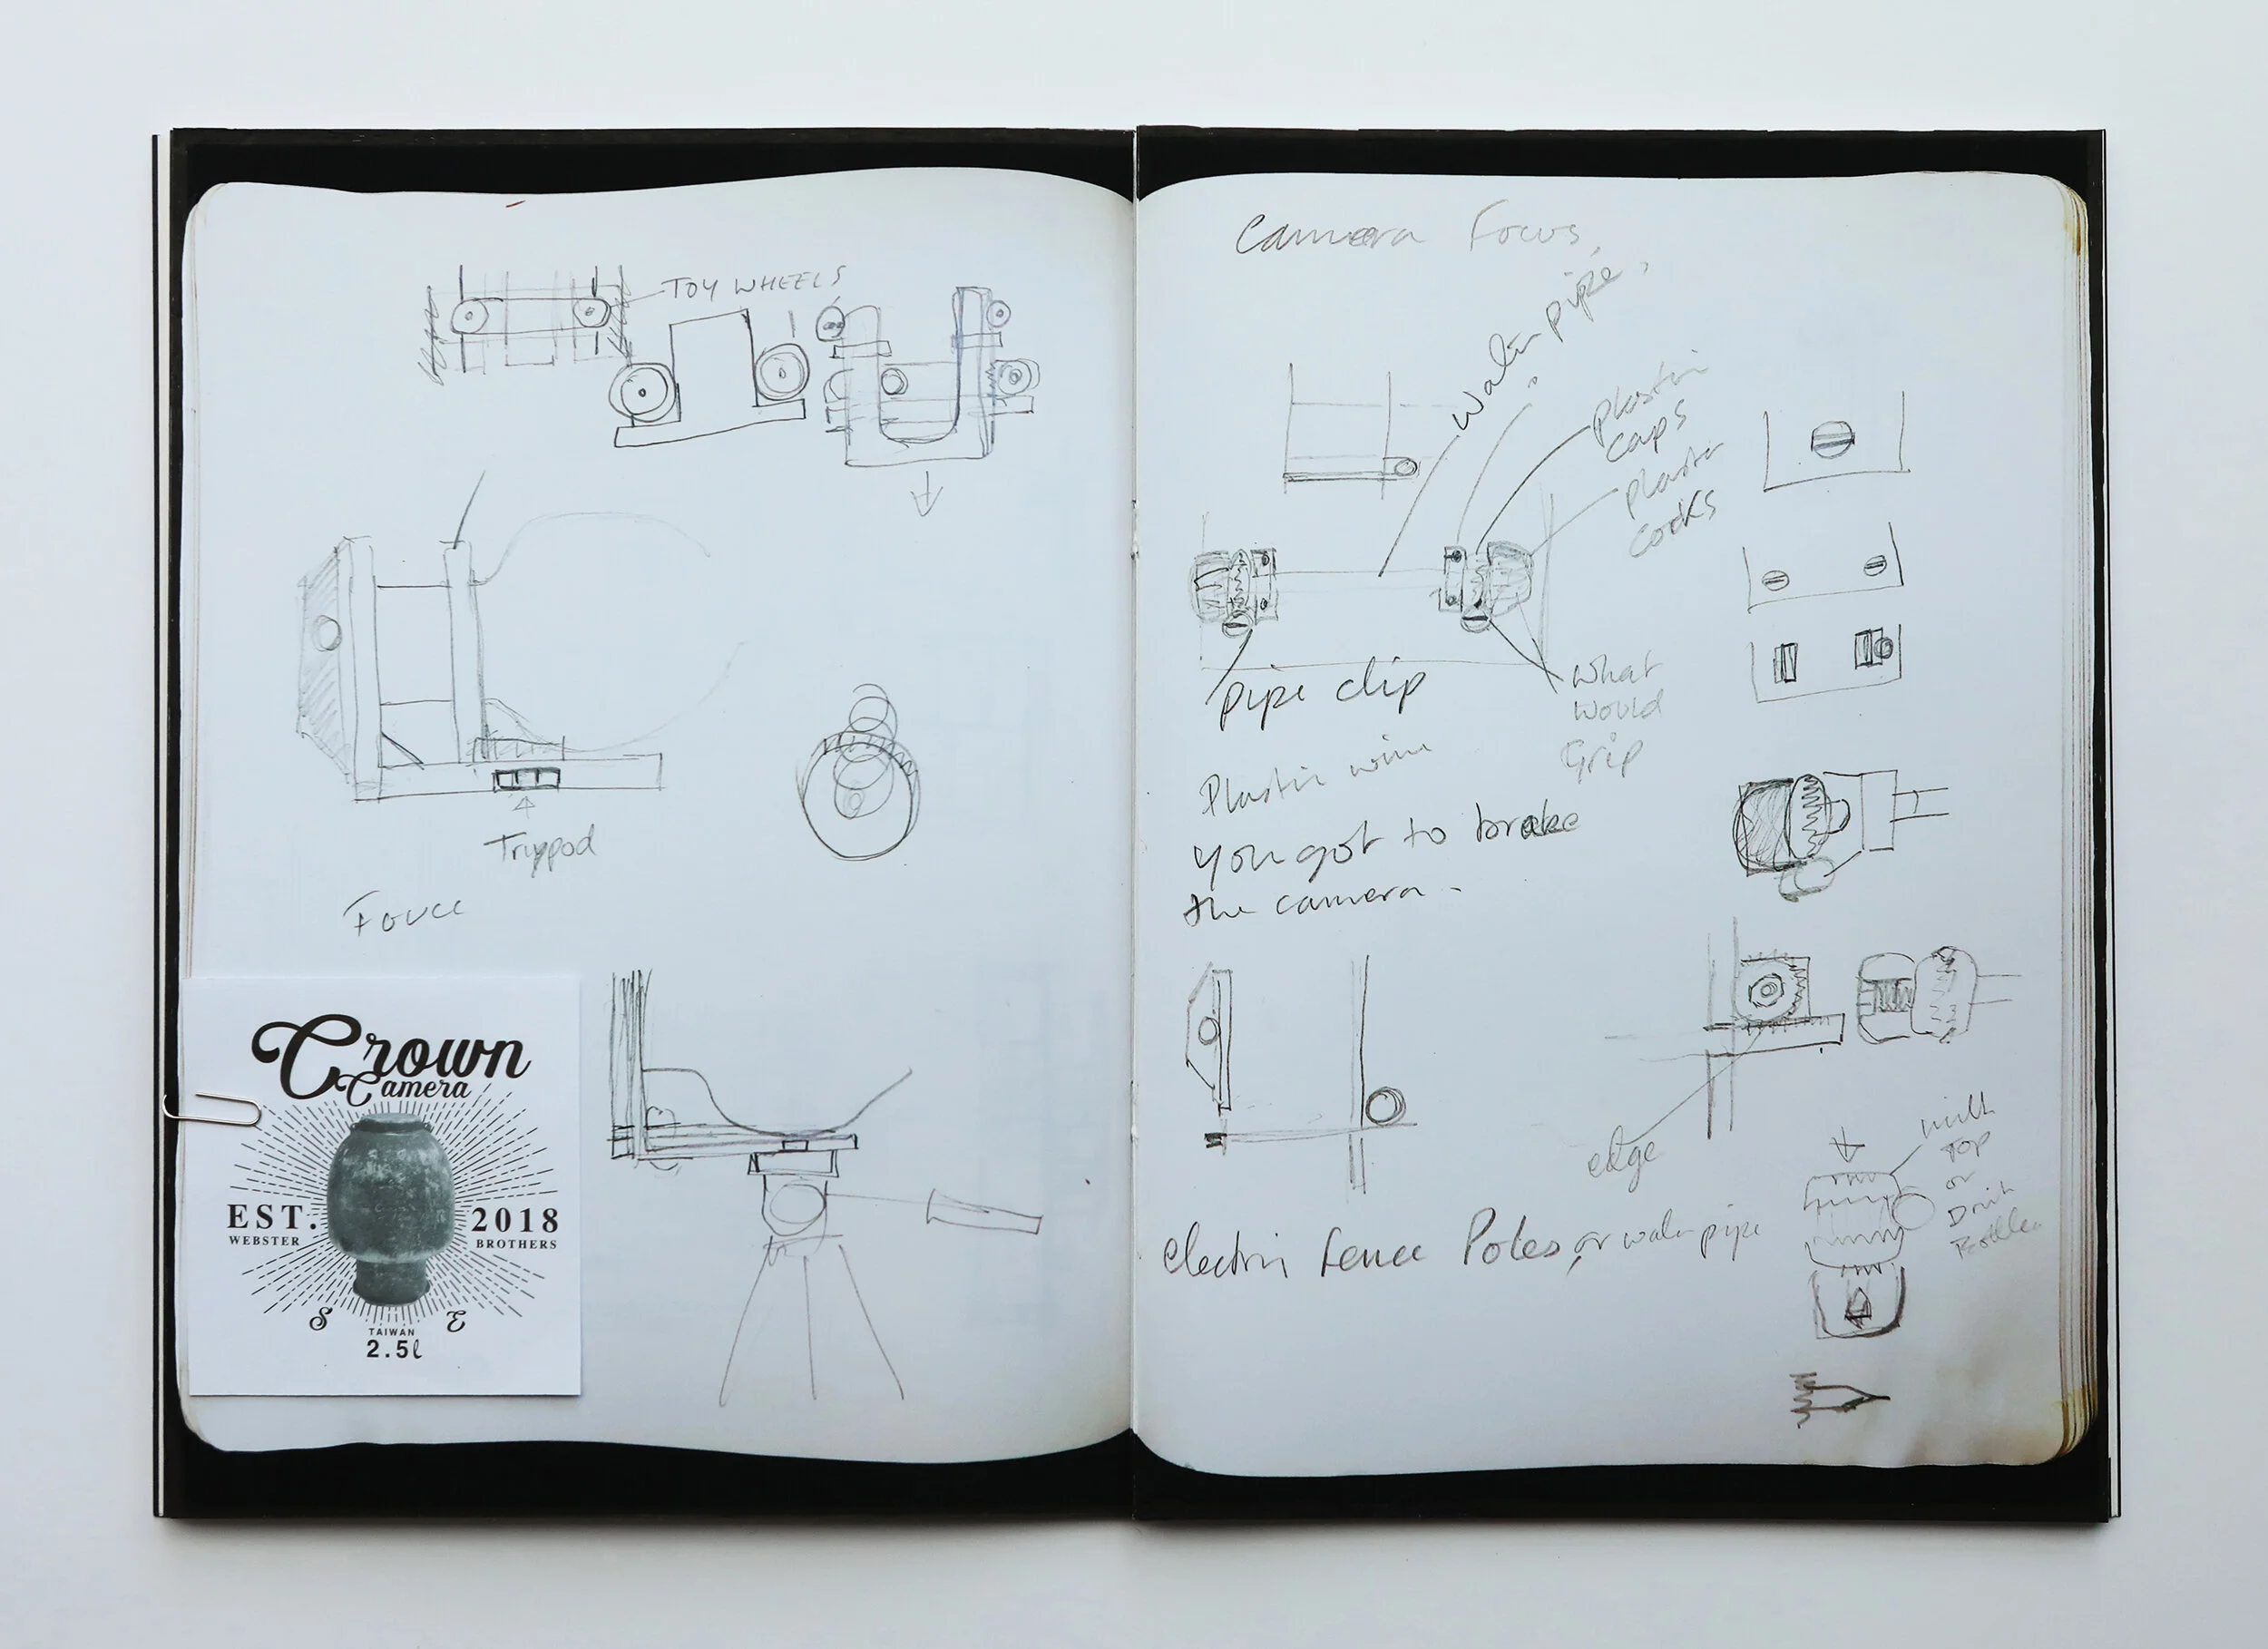 TOY WHEELS
Tryypod
Crown
Camera
EST. 2018
WEBSTER BROTHERS
S E
TAIWAN
2.5l
Camera Focus,
Water pipe,
plastic
caps
plastic
Pipe clip
What
Would
Grip
Plastic
You got to brake
the camera -
edge
Electric Fence Poles, or water pipe
milk
Top
or
Drink
Bottles